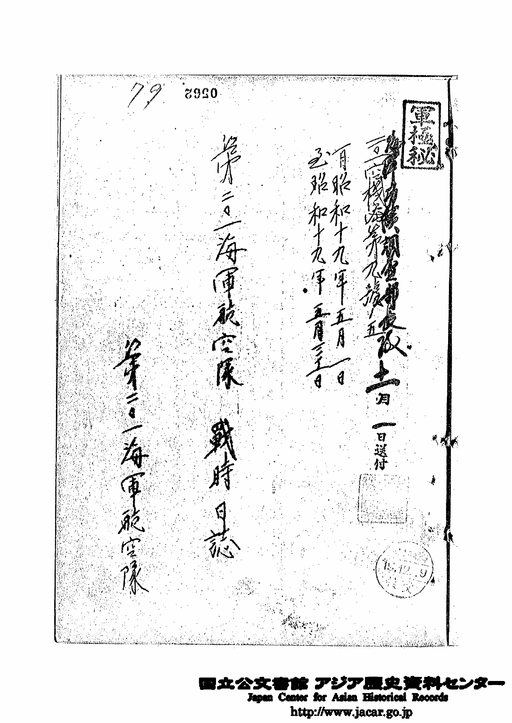 79
0262
軍極秘
二〇一空機密第九號ノ五
十一月一日送付
自昭和十九年五月一日
至昭和十九年五月三十一日
第二〇一海軍航空隊 戰時日誌
第二〇一海軍航空隊
19.12.9
国立公文書館 アジア歴史資料センター
Japan Center for Asian Historical Records
http://www.jacar.go.jp